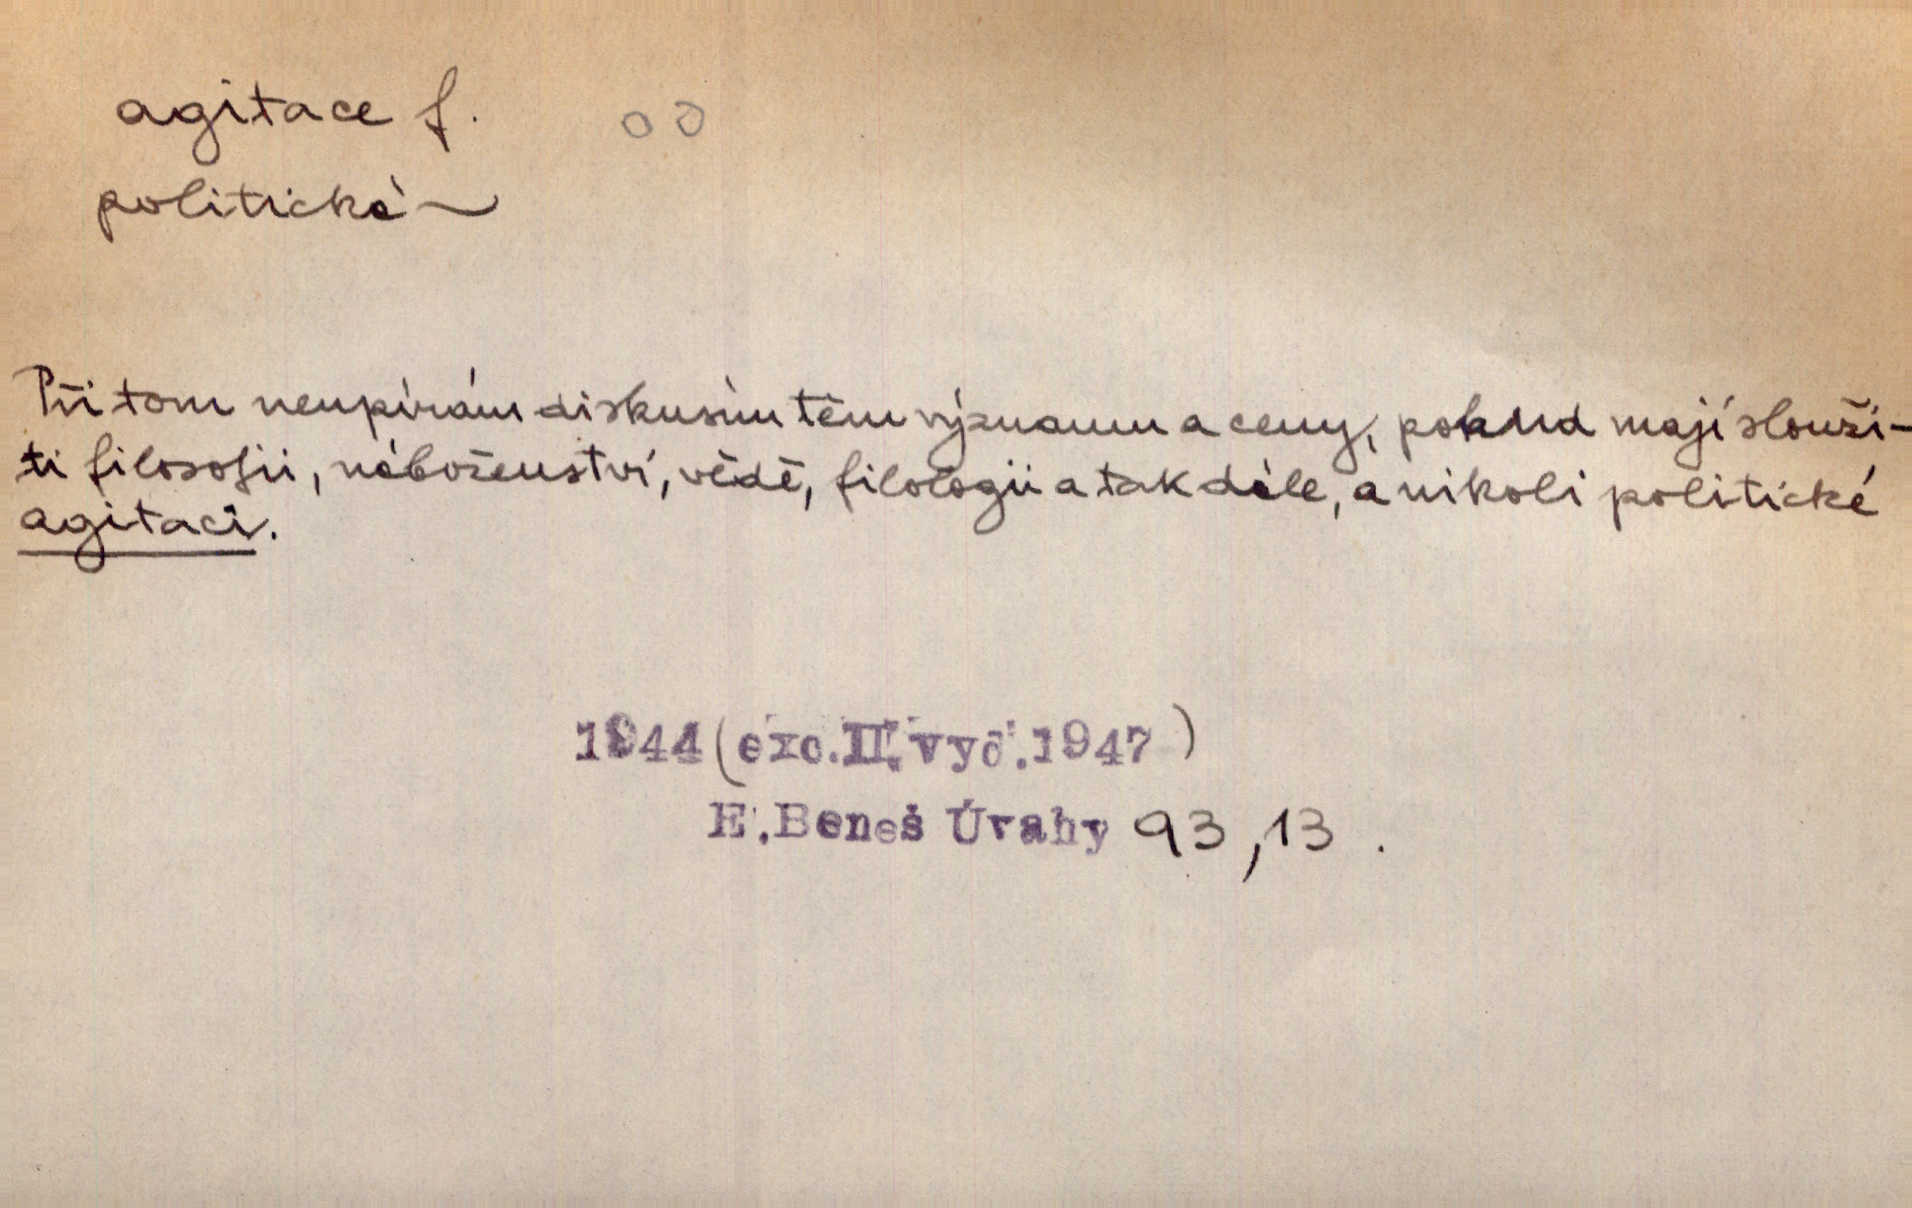 agitace f. oo
politická ~
Při tom neupírám diskusím těm významu a ceny, pokud mají slouži-
ti filosofii, náboženství, vědě, filologii a tak dále, a nikoli politické
agitaci.
1944 (exc. II. vyd. 1947)
E. Beneš Úvahy 93, 13.